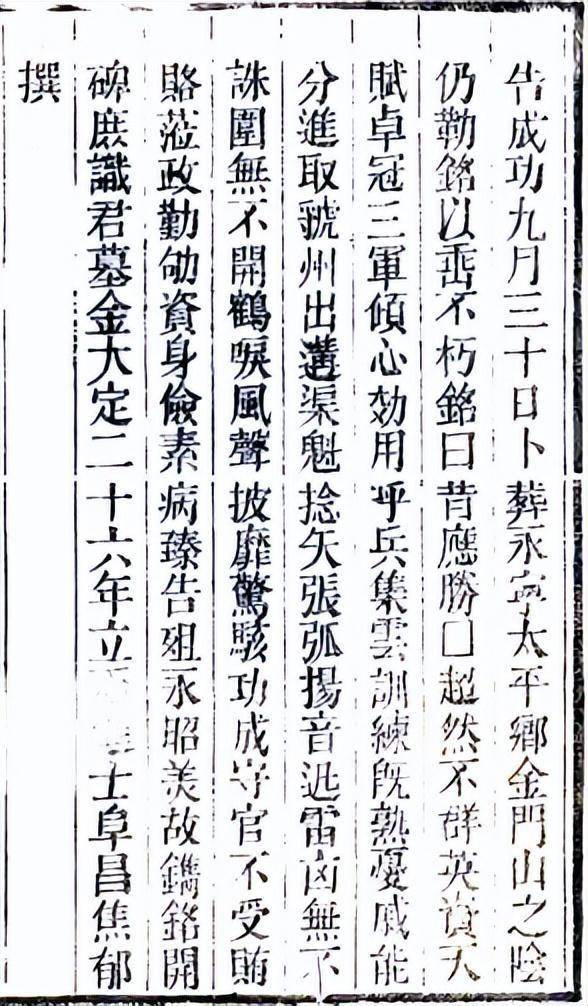 告成功九月三十日卜葬永寧太平鄉金門山之陰
仍勒銘以垂不朽銘曰昔應勝□超然不群英資天
賦卓冠三軍傾心効用乎兵集雲訓練既熟憂戚能
分進取虢州出遘渠魁捻矢張弧揚音迅雷凶無不
誅圍無不開鶴唳風聲披靡驚駭功成守官不受賄
賂蒞政勤劬資身儉素病臻告殂永昭美故鐫銘開
碑庶識君墓金大定二十六年立士阜昌焦郁
撰